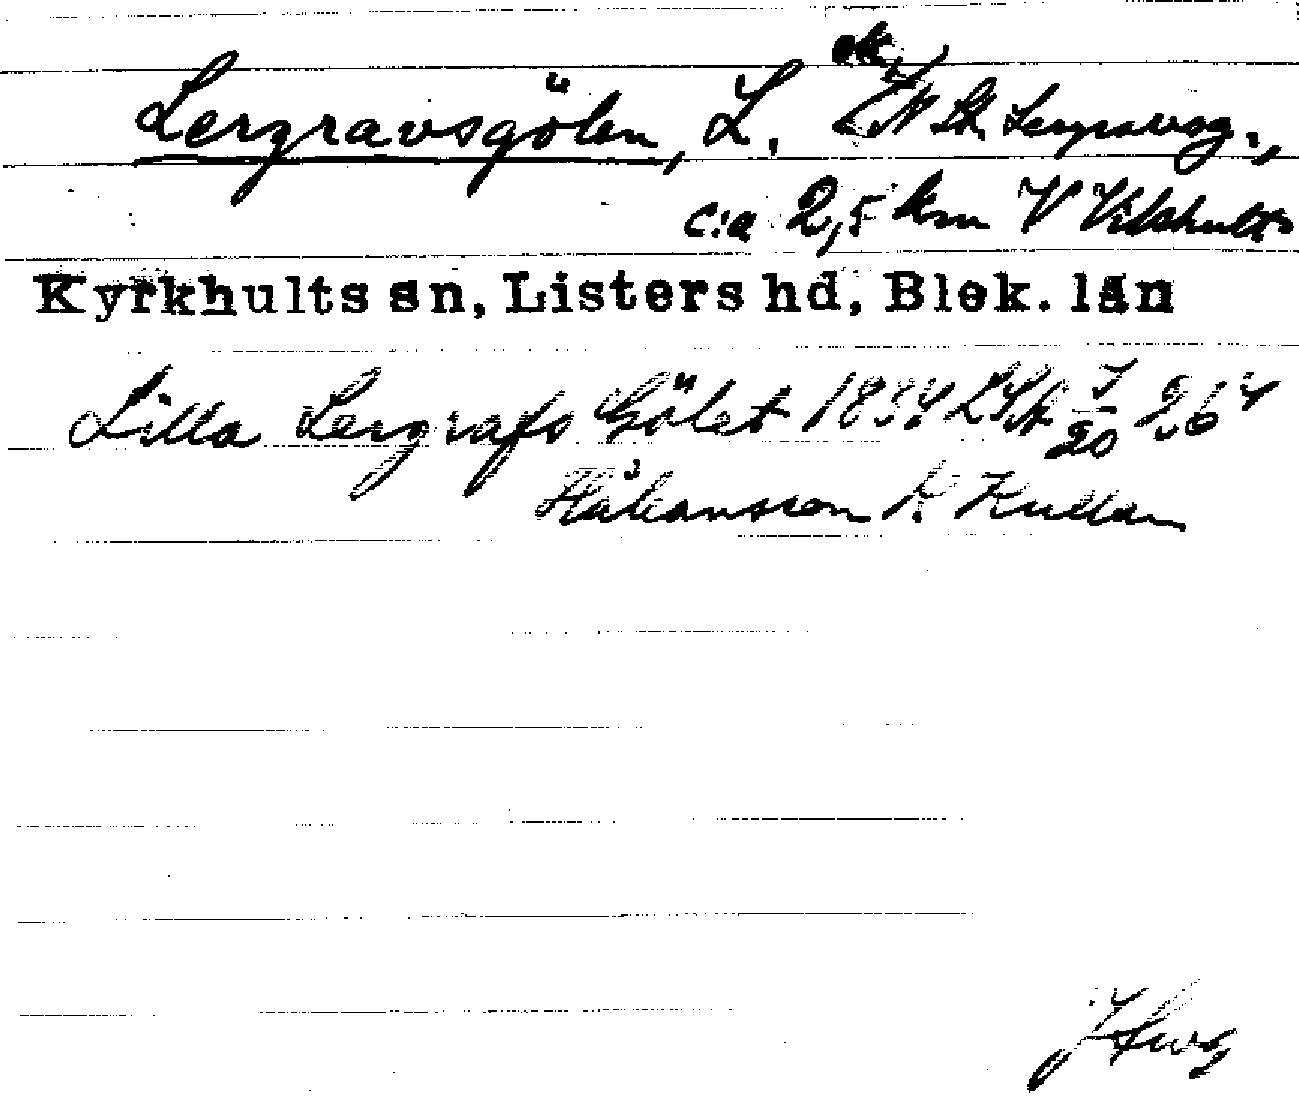 Lergravsgölen, L. N St. Lergravsg.,
c:a 2,5 km V Vilshult
Kyrkhults sn, Listers hd, Blek. län
Lilla Lergrafs Gölet 1834 LSA 20 264
Håkansson K. Kullan